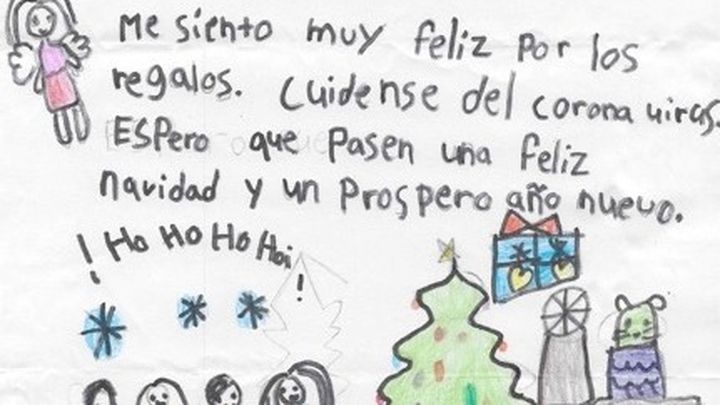 Me siento muy feliz por los
regalos. Cuidense del corona virus.
ESPero que Pasen una feliz
navidad y un Prospero año nuevo.
¡Ho Ho Ho Hoi!